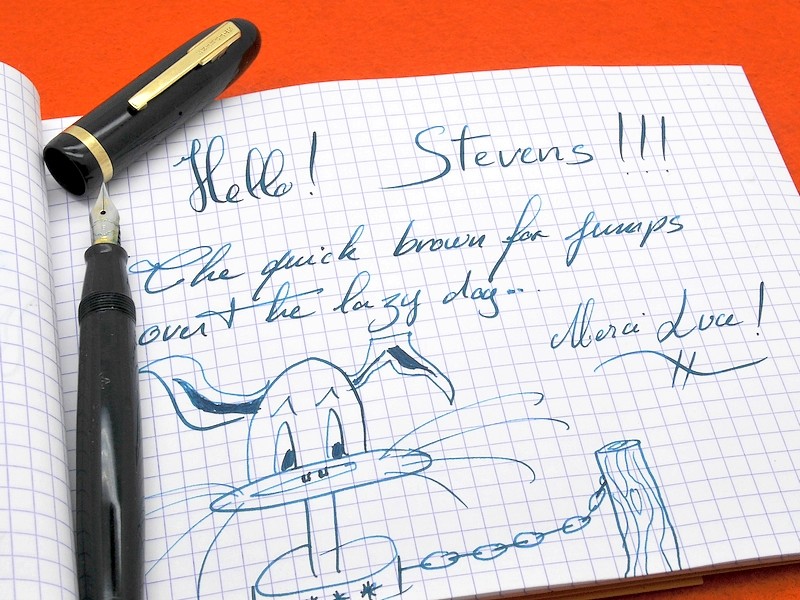 Hello! Stevens !!!
The quick brown fox jumps
over the lazy dog...
Merci Luce!